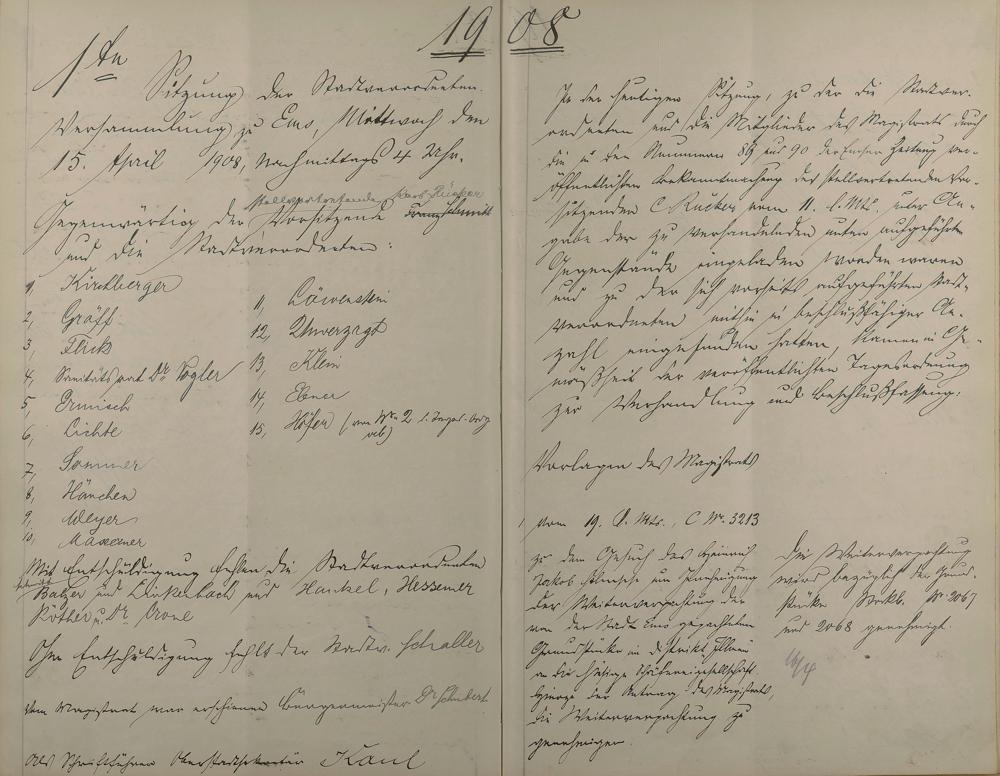 1908
1te
Sitzung der Stadtverordneten-
Versammlung zu Ems, Mittwoch den
15. April 1908, Nachmittags 4 Uhr.
stellvertretende Carl Rücker
Gegenwärtig der Vorsitzende Franz Schmitt
und die Stadtverordneten:
1, Kirchberger
2, Gräff
3, Flick
4, Sanitätsrat Dr. Vogler
5, Ermisch
6, Lichte
7, Sommer
8, Hänchen
9, Weyer
10, Maxeiner
11, Löwenstein
12, Unverzagt
13, Klein
14, Ebner
15, Höfer (von No 2 d. Tages-Ordg
ab)
Mit Entschuldigung fehlen die Stadtverordneten
Balzer und und Hankel, Hessemer
Röther u. Dr. Crone
Ohne Entschuldigung fehlt der Stadtv. Schaller
Vom Magistrat war erschienen Bürgermeister Dr. Schubert.
Als Schriftführer Oberstadtsekretär Kaul
In der heutigen Sitzung, zu der die Stadtver-
ordneten und die Mitglieder des Magistrats durch
die in den Nummern 89 und 90 der Emser Zeitung ver-
öffentlichten Bekanntmachung des stellvertretenden Vor-
sitzenden C. Rücker vom 11. d. Mts. unter An-
gabe der zu verhandelnden unten aufgeführten
Gegenstände eingeladen worden waren
und zu der sich vorseits aufgeführten Stadt-
verordneten mithin in beschlußfähiger An-
zahl eingefunden hatten, kamen in Ge-
mäßheit der veröffentlichten Tagesordnung
zur Verhandlung und Beschlußfassung:
Vorlagen des Magistrats
1 vom 19. d. Mts., C No. 3213
zu dem Gesuch des Heinrich
Jakob um Genehmigung
der Weiterverpachtung der
von der Stadt Ems gepachteten
Grundstücke im Distrikt
an die hiesige Schäfereigesellschaft.
Hierzu der Antrag des Magistrats,
die Weiterverpachtung zu
genehmigen.
Die Weiterverpachtung
wird bezüglich der Grund-
stücke Stockb. No. 2067
und 2068 genehmigt.